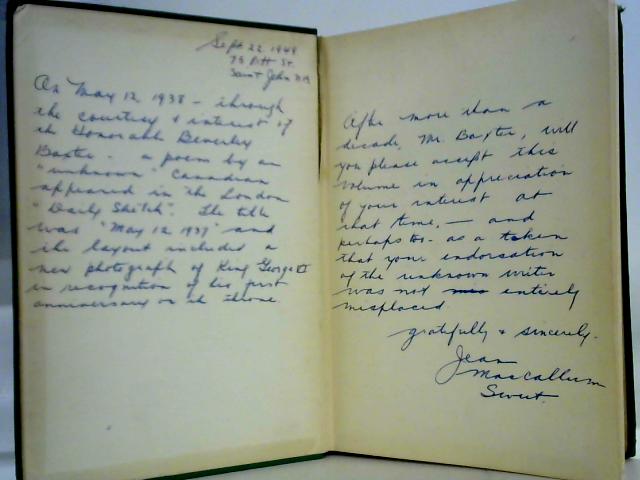 Sept 22 1949
75 Pitt St.
Saint John N.B.
On May 12, 1938 - through
the courtesy & interest of
the Honorable Beverley
Baxter - a poem by an
"unknown" Canadian
appeared in the London
"Daily Sketch". The title
was "May 12, 1937" and
the layout included a
new photograph of King George VI
in recognition of his first
anniversary on the throne
After more than a
decade, Mr. Baxter, will
you please accept this
volume in appreciation
of your interest at
that time, - and
perhaps too - as a token
that your endorsation
of the unknown writer
was not entirely
misplaced.
gratefully & sincerely.
Jean
MacCallum
Sweet.